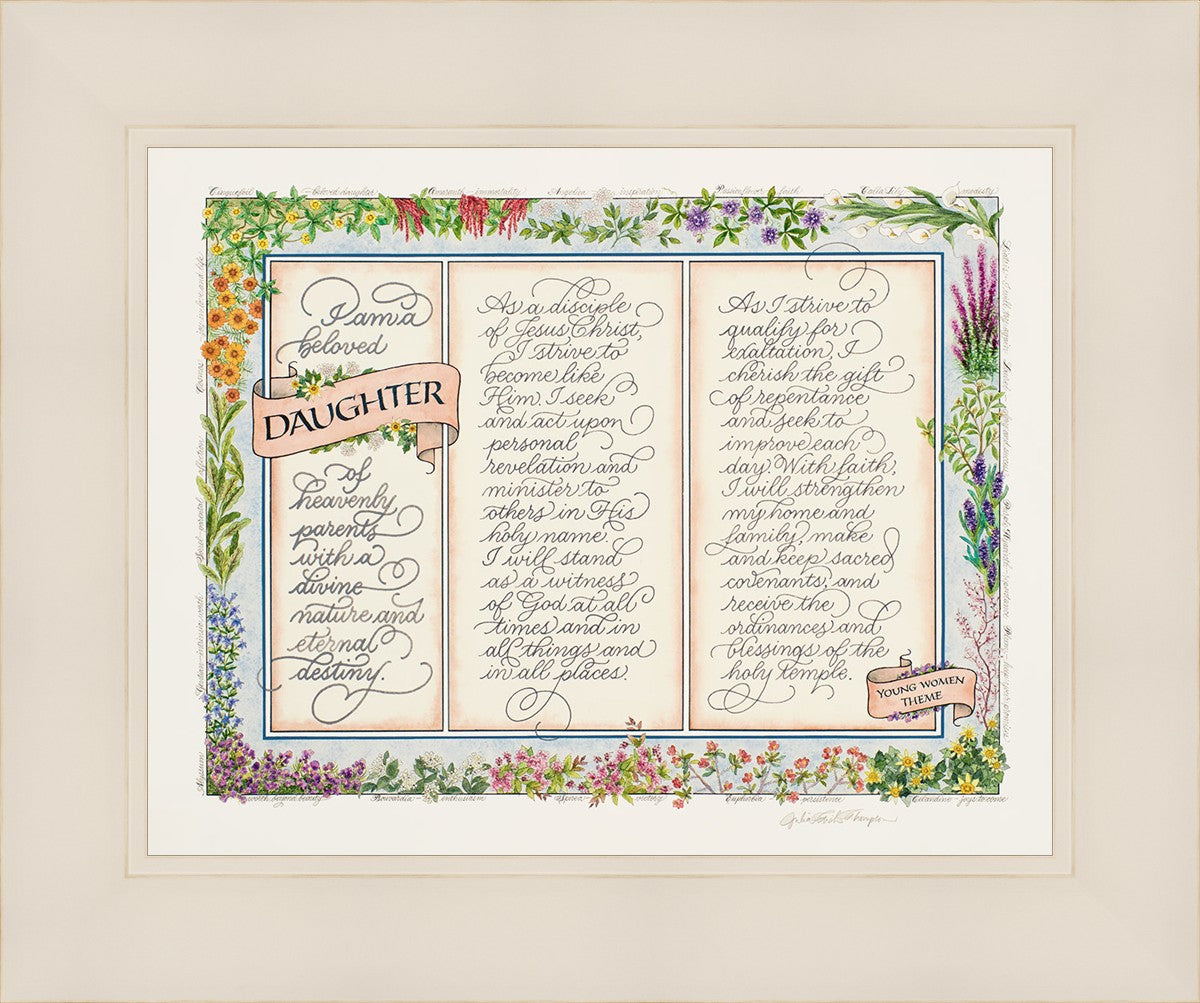 Cinquefoil – beloved daughter
Amaranth – immortality
Angelica – inspiration
Passionflower – faith
Calla Lily – modesty
I am a
beloved
DAUGHTER
of
heavenly
parents
with a
divine
nature and
eternal
destiny.
As a disciple
of Jesus Christ,
I strive to
become like
Him. I seek
and act upon
personal
revelation and
minister to
others in His
holy name.
I will stand
as a witness
of God at all
times and in
all things and
in all places.
As I strive to
qualify for
exaltation, I
cherish the gift
of repentance
and seek to
improve each
day. With faith,
I will strengthen
my home and
family, make
and keep sacred
covenants, and
receive the
ordinances and
blessings of the
holy temple.
YOUNG WOMEN
THEME
worth beyond beauty
Bouvardia – enthusiasm
Spirea – victory
Euphorbia – persistence
Celandine – joys to come